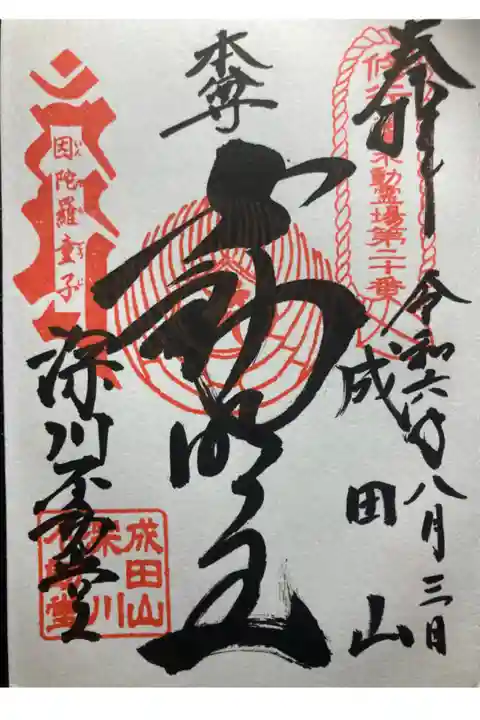 奉拝
関東三十六不動霊場第二十番
令和六年八月三日
成田山
本尊
不動明王
因陀羅童子
深川不動堂
成田山
深川
不動堂